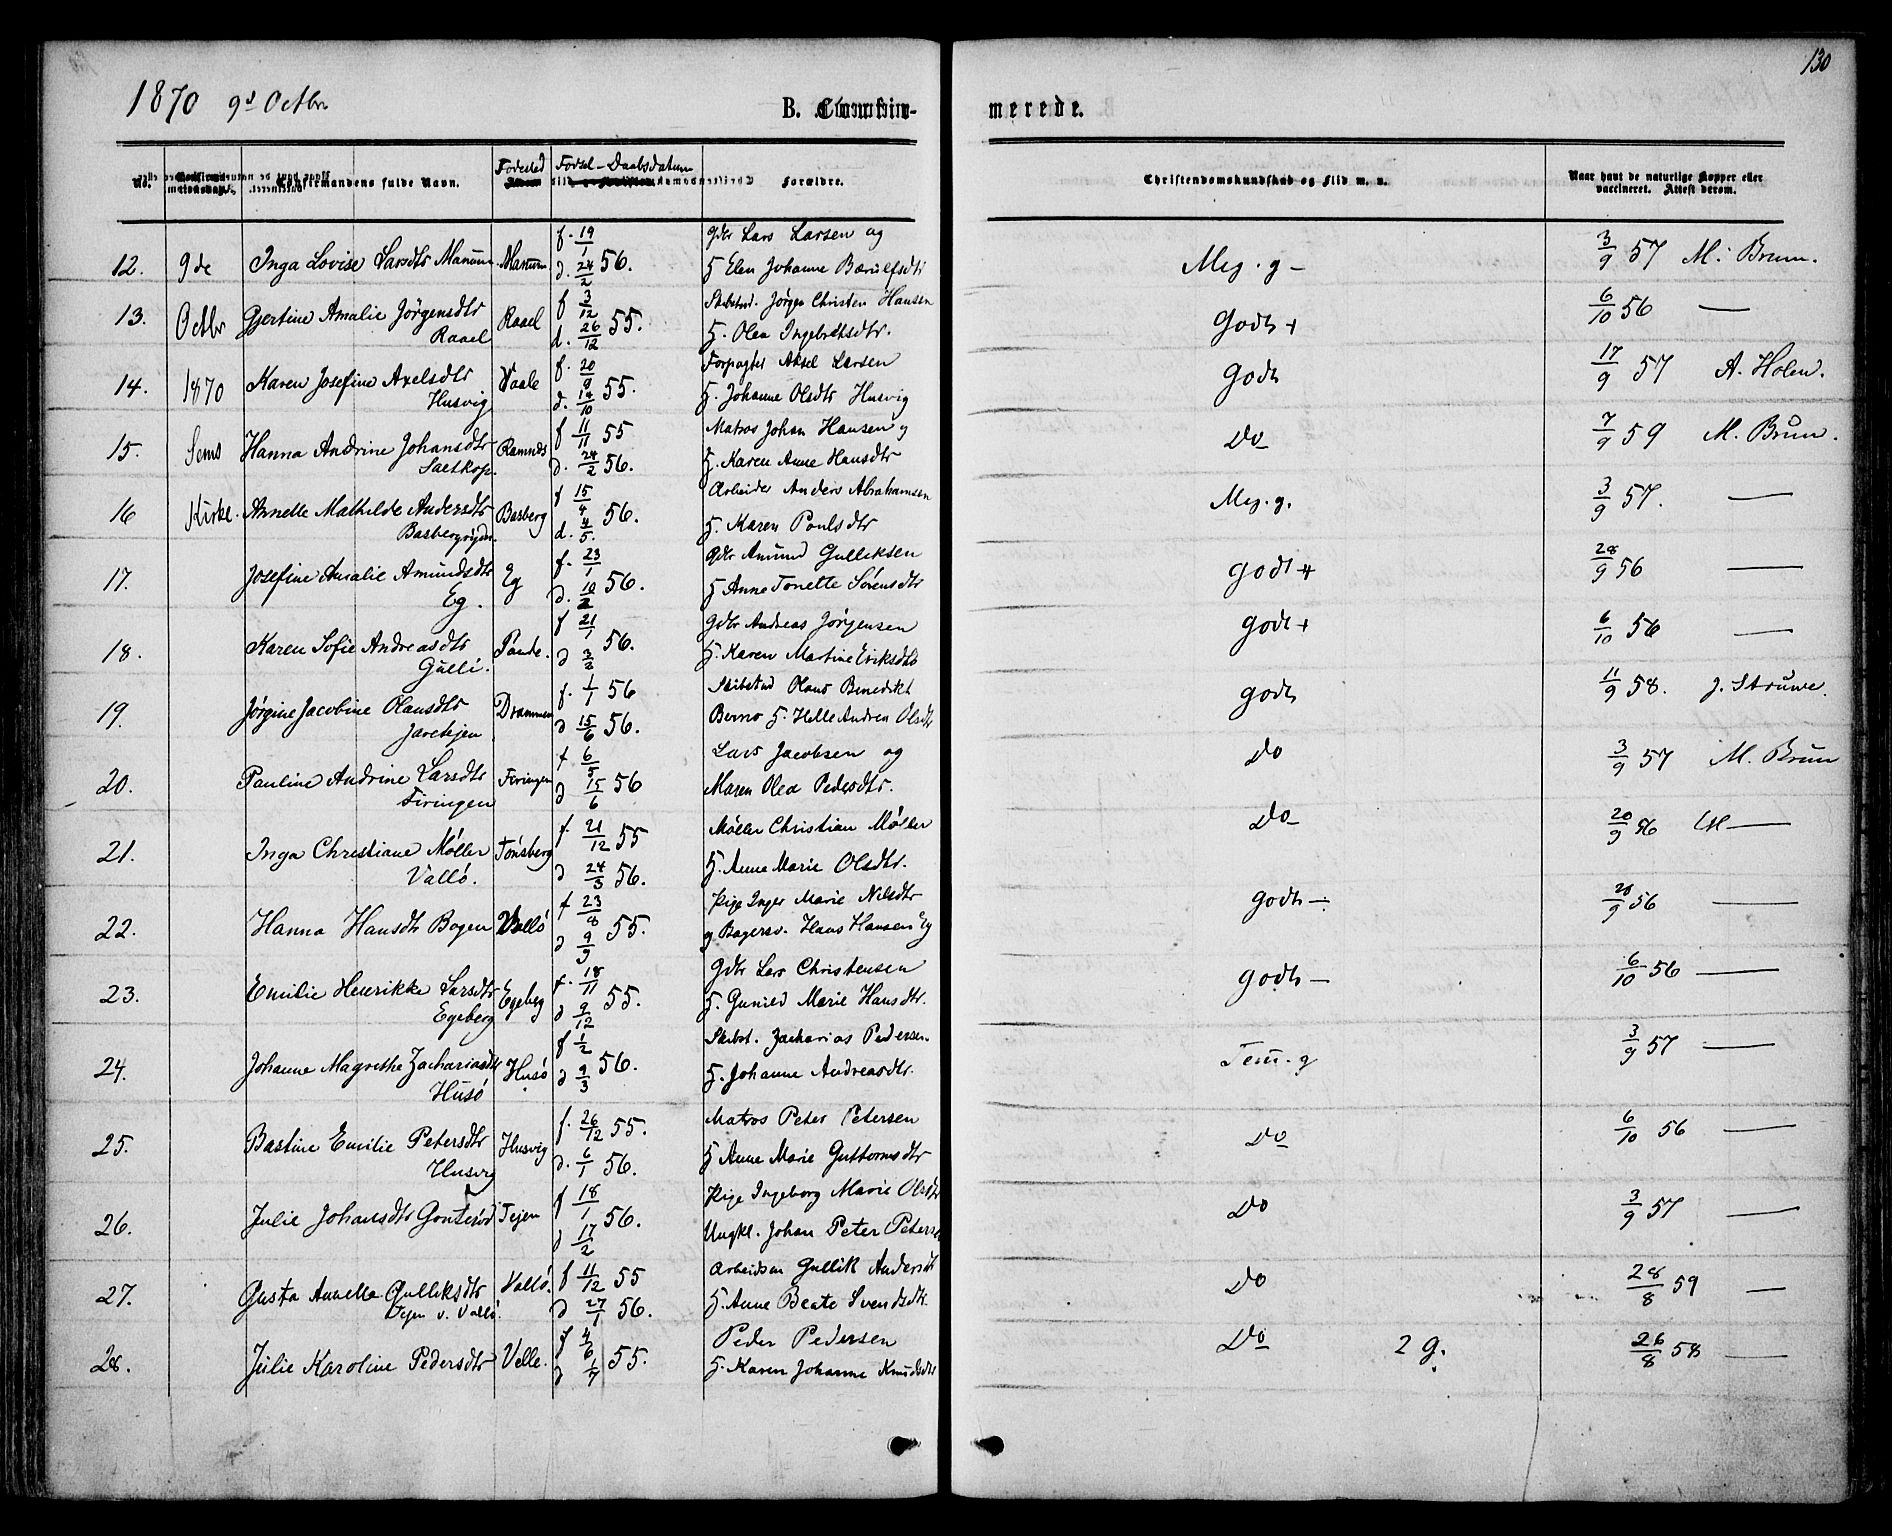 130
1870 9d Octbr
B. Confirmerede.
No.
Confirmandens fulde Navn.
Fodested
Fodsel - Daabsdatum
Forældre.
Christendomskundskab og Flid m. v.
Naar havt de naturlige Kopper eller vaccineret. Attest derom.
12. 9de Inga Lovise Larsdtr Manum Manum f. 19/1 d. 24/2 56. Gdbr Lars Larsen og
Elen Johanne
Meg. g - 3/9 57 M. Brun.
13. Octbr Gjertine Amalie Jörgensdtr
Raael Raael f 3/12 d. 26/12 55. Skibstmd. Jørgen Christen Hansen
H. Olea Ingebretsdtr.
Godt + 6/10 56 —
14. 1870 Karen Josefine Axelsdtr
Husvig Vaale f. 20/9 d. 14/10 55. Forpagter Aksel Larsen
H. Johanne Olsdtr Husvig
godt 17/9 57 A. Holm.
15. Sems Hanna Andrine Johansdtr
Saltkop. Ramnes f 11/11 55 d. 24/2 56. Matros Johan Hansen
H. Karen Anne Hansdtr
Do 7/9 59 M. Brun.
16 Kirke. Annette Mathilde Andersdtr
Basberg f 15/4 d. 4/5. 56. Arbeider Anders Abrahamsen
H. Karen Poulsdtr
Meg. g. 3/9 57. —
17. Josefine Amalie Amundsdtr
Eg. Eg f. 23/1 d. 10/2 56. Gdbr Amund Gulliksen
H Anne Tonette Sörensdtr
godt + 28/9 56 —
18. Karen Sofie Andreasdtr
Gulli. Pande. f 21/1 d 3/2 56. Gdbr Andreas Jørgensen
H. Karen Martine Eriksdtr
godt + 6/10 56 —
19. Jørgine Jacobine Olausdtr
Jareteien Drammen f. 1/1 56 d 15/6 56. Skibstmd Olaus Benedikt
H. Helle Andrea Olsdtr
godt 11/9 58. J. Struwe.
20. Pauline Andrine Larsdtr
Firingen Firingen f 6/5 d 15/6 56 Lars Jacobsen og
Maren Olea Pedersdtr.
Do 3/9 57 M. Brun
21. Inga Christiane Møller
Vallö. Tønsberg f. 21/12 55 d 24/3 56. Møller Christian Møller
H. Anne Marie Olsdtr.
Do 20/9 56 M —
22. Hanna Hansdtr Bogen Vallö f 23/8 d 9/9 55. Pige Inger Marie Nilsdtr
g Bagersv. Hans Hansen Eg
godt - 28/9 56 —
23. Emilie Henrikke Larsdtr
Egeberg Egeberg f. 18/11 d 9/12 55. Gdbr Lars Christensen
H. Gunild Marie Hansdtr.
godt - 6/10 56 —
24. Johanne Magrethe Zachariasdtr
Husö Husö f 1/2 d 9/3 56. Skibst. Zacharias Pedersen
H. Johanne Andreasdtr.
Tem. g 3/9 57 —
25. Bastine Emilie Petersdtr
Husvig Husvig f. 26/12 55. d. 6/1 56. Matros Peter Petersen
H Anne Marie Guttormsdtr
Do 6/10 56 —
26. Julie Johansdtr Teien f 18/1 d 17/2 56. Pige Ingeborg Marie Olsdtr
Ungkl. Johan Peter Petersen
Do 3/9 57 —
27. Gusta Annette Gulliksdtr
Teien v. Vallö. Vallö. f 11/12 55 d 27/1 56. Arbeidsm Gullik Andersen
H. Anne Beate Svendsdtr.
Do 28/8 59 —
28. Julie Karoline Pedersdtr Velle. f 4/6 d 1/7 55. Peder Pedersen
H. Karen Johanne Knudsdtr
Do 2 g. 26/8 58 —